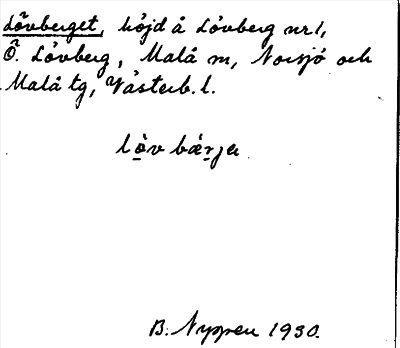 Lövberget, höjd å Lövberg nr 1,
Ö. Lövberg, Malå sn, Norsjö och
Malå tg, Västerb. l.
lòv bærja
B. Nyppen 1930.